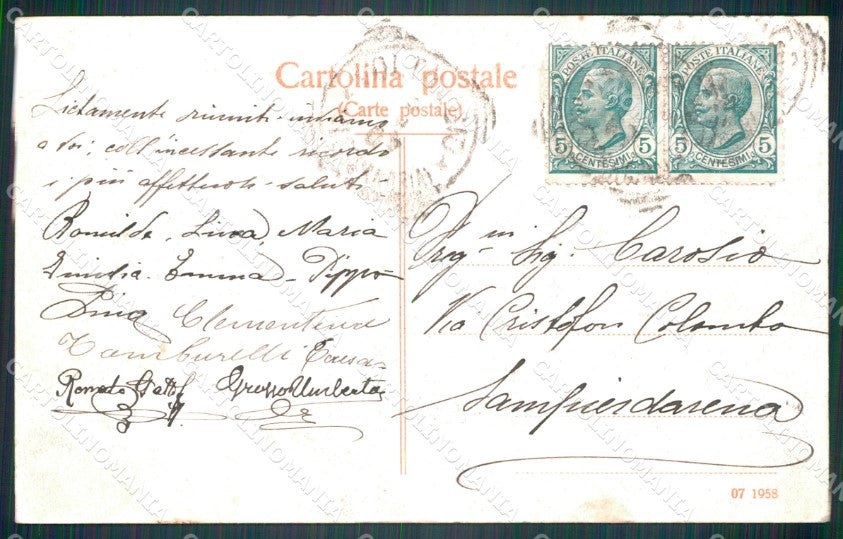 Cartolina postale
(Carte postale)
POSTE ITALIANE
5 CENTESIMI 5
POSTE ITALIANE
5 CENTESIMI 5
Lietamente riuniti inviamo
a voi, coll'incessante ricordo
i più affettuosi saluti
Romilda, Luisa, Maria
Emilia - Emma - Pippo
Pina Clementina
Tamburelli Teresa
Romato Grosso Umberto
Preg Sig. Carosio
Via Cristofor Colombo
Sampierdarena
07 1958
CARTOLINOMANIA